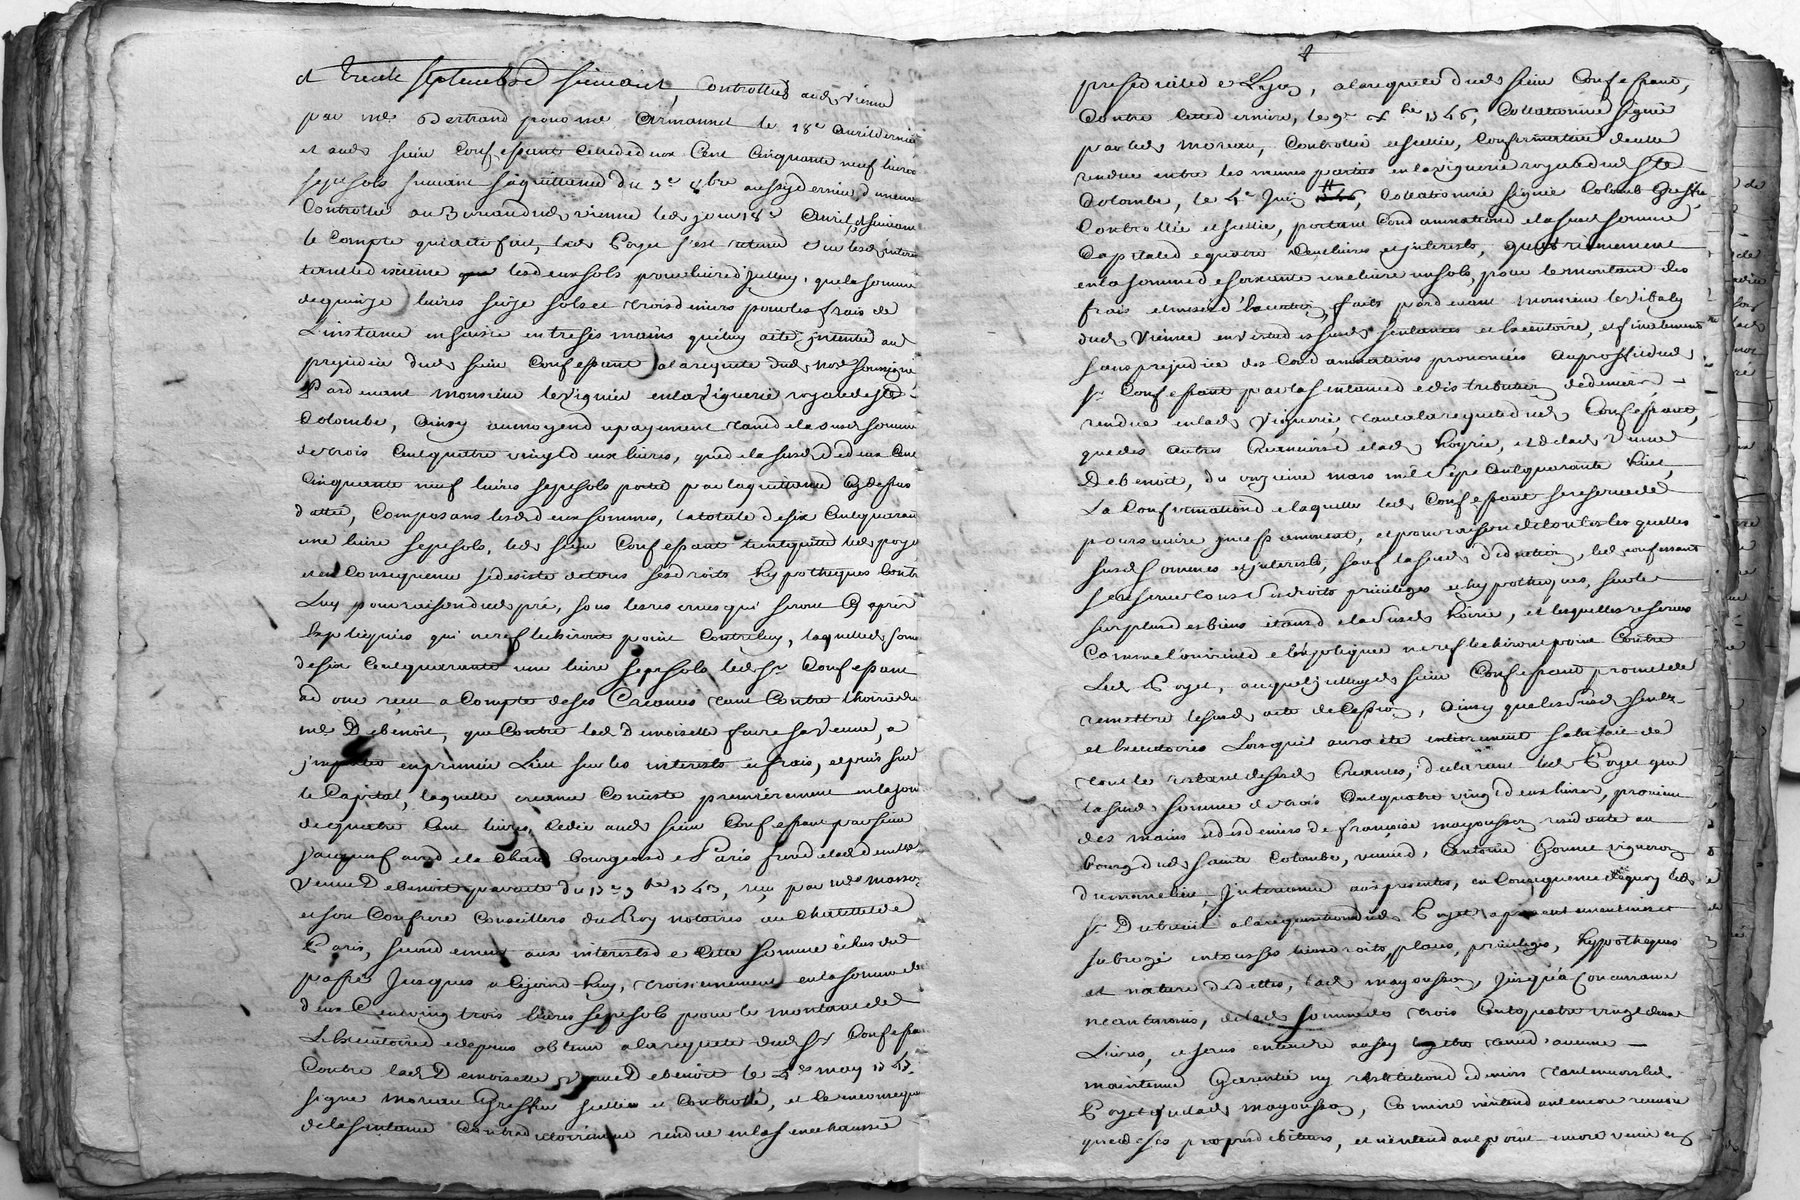 et trente septembre suivant, Controllée aud. vienne
par me Bertrand pour me Armannet le 18e avril dernier
et aud. sieur Confessant celle de deux Cent Cinquante neuf livres
sept sols suivant sa quittance du 3e 8bre aussy dernier, dument
Controllée au Bureau dud. vienne led. jour 18e avril, et suivant
le Compte qui a été fait, led. Poyet s'est retenu sur lesd. interets
le vingtieme les deux sols pour livre d'jcelluy, que la somme
de quinze livres seize sols et trois deniers pour les frais de
L'instance en saisie entre ses mains qui luy a été jntentée au
prejudice dud. sieur Confessant a la requete dud.
Pardevant Monsieur le viguier en la viguerie royale de ste
Colombe, Ainsy au moyen du payement tant de la susd. somme
de trois Cent quatre vingt deux livres, que de la susd. de deux Cent
Cinquante neuf livres sept sols porté par la quittance Cy dessus
dattée, Composans lesd. deux sommes, la totale de six Cent quarante
une livre sept sols, led. sieur Confessant tient quitte led. poyet
et en Consequence se desiste de tous ses droits hypotheques Contre
Luy pour raison dud. pré, sous les reserves qui seront Cy après
Expliquées qui ne reflechiront point Contre luy, laquelle somme
de six Cent quarante une livre sept sols led. sr Confessant
a dit avoir reçu a Compte de ses Créances tant Contre l'hoirie dud.
me Debenoit, que Contre lad. demoiselle faure sa veuve, a
jmputer en premier Lieu sur les interests et frais, et puis sur
le Capital, laquelle creance Consiste premièrement en la somme
de quatre Cent livres, Cedée aud. sieur Confessant par sieur
Bourgeois de Paris frere de lad. demlle
veuve Debenoit par acte du 13e 9bre 1743, reçu par me
et son Confrere Conseillers du Roy notaires au Chatelet de
Paris, secondement aux interests de Cette somme échus du
passé Jusques a Cejourd-huy, troisiemement en la somme de
deux Cent vingt trois livres sept sols pour le montant de
L'executoire de depens obtenu a la requete dud. sr Confessant
Contre lad. Demoiselle veuve Debenoit le 4e may 1747
signé moreau Greffier scellé et Controllé, et la
de la sentence Contradictoirement rendue en la senechaussée
presidialle de Lyon, a la requete dud. sieur Confessant,
Contre Cette derniere, le 9e Xbre 1746, Collationnée signée
par led. moreau, Controllée et scellée, Confirmative de celle
rendue entre les memes parties en la viguerie royale dud. Ste
Colombe, le 4e Juin 1746, Collationnée signée Colomb Greffier,
Controllée et scellée, portant Condamnation de la susd. somme
Capitale de quatre Cent livres et jnterests, quatriemement
en la somme de soixante une livre un sols, pour le montant des
frais et mises d'execution faits pardevant Monsieur le vibaly
dud. Vienne en vertu desd. susd. sentences et Executoire, et finalement
sans prejudice des Condamnations prononcées au proffit dud.
sr Confessant par la sentence de distribution de deniers
rendue en lad. Viguerie, tant a la requete dud. Confessant,
que des autres Creanciers de lad. hoyrie, et de lad. veuve
Debenoit, du onzieme mars mil Sept Cent quarante huit,
La Confirmation de laquelle led. Confessant se reserve de
poursuivre jncessamment, et pour raison de toutes lesquelles
susd. sommes et jnterests, sauf la susd. deduction, led. confessant
se reserve tous ses droits privileges et hypotheques, sur le
surplus des biens etant de la susd. hoirie, et lesquelles reserves
Comme l'on vient de l'expliquer ne reflechiront point Contre
Led. Poyet, auquel led. sieur Confessant promet de
remettre le susd. acte de Cession, Ainsy que les susd. sentces
et Executoires Lorsqu'il aura été entierement satisfait de
tout le restant desd. Creances, declarant led. Poyet que
la susd. somme de trois Cent quatre vingt deux livres, provient
des mains et des deniers de françoise mayousson residante au
bourg dud. sainte Colombe, veuve d'Antoine Bonnet vigneron
du meme lieu, Jntervenue aux presentes, en Consequence de quoy led.
sr Dubreuil a la requisition dud. Poyet
subrogé en tous ses lieu droits, place, privileges, hypotheques
et nature de dettes, lad. mayousson, Jusqu'a Concurrance
neantmoins, de lad. somme de trois Cent quatre vingt deux
Livres, ce sera entendre aussy sans d'aucune
maintenue Garentie ny restitution de deniers tant envers led.
Poyet que lad. mayousson, Comme n'entendant encore recevoir
que de ses propres debiteurs, et n'entendant point encore venir en